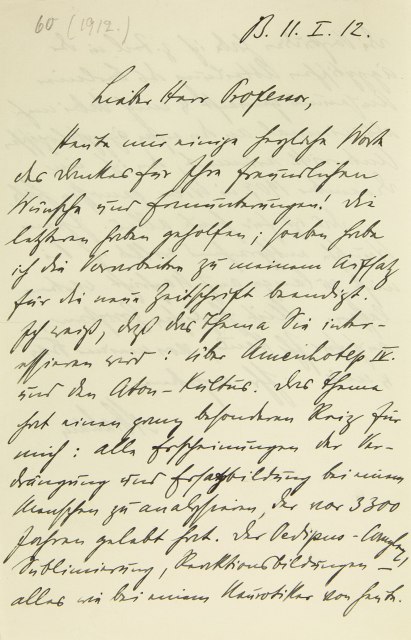 60 (1912.)
B. 11. I. 12.
Lieber Herr Professor,
Heute nur einige herzliche Worte
des Dankes für Ihre freundlichen
Wünsche und Ermunterungen! Die
letzteren haben geholfen; soeben habe
ich die Vorarbeiten zu meinem Aufsatz
für die neue Zeitschrift beendigt.
Ich weiß, daß das Thema Sie inter-
essieren wird: über Amenhotep IV.
und den Aton-Kultus. Das Thema
hat einen ganz besonderen Reiz für
mich: alle Erscheinungen der Ver-
drängung und Ersatzbildung bei einem
Menschen zu analysieren, der vor 3300
Jahren gelebt hat. Der Oedipus-Complex,
Sublimierung, Reaktionsbildungen –
alles wie bei einem Neurotiker von heute.